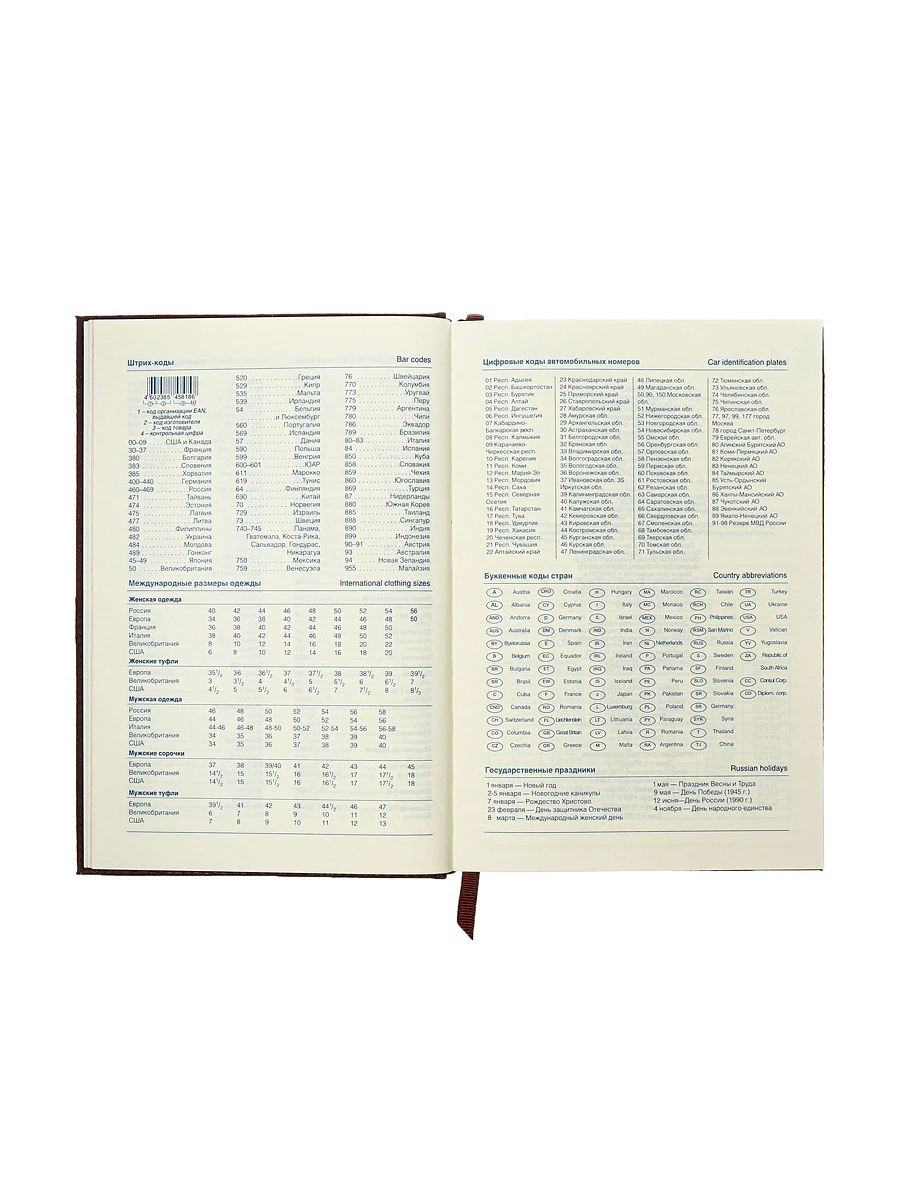 Штрих-коды Bar codes
4 602365 458186
1 – код организации EAN,
выдавшей код
2 – код изготовителя
3 – код товара
4 – контрольная цифра
00–09 США и Канада
30–37 Франция
380 Болгария
383 Словения
385 Хорватия
400–440 Германия
460–469 Россия
471 Тайвань
474 Эстония
475 Латвия
477 Литва
480 Филиппины
482 Украина
484 Молдова
489 Гонконг
45–49 Япония
50 Великобритания
520 Греция
529 Кипр
535 Мальта
539 Ирландия
54 Бельгия
и Люксембург
560 Португалия
569 Исландия
57 Дания
590 Польша
599 Венгрия
600–601 ЮАР
611 Марокко
619 Тунис
64 Финляндия
690 Китай
70 Норвегия
729 Израиль
73 Швеция
740–745 Панама,
Гватемала, Коста-Рика,
Сальвадор, Гондурас,
Никарагуа
750 Мексика
759 Венесуэла
76 Швейцария
770 Колумбия
773 Уругвай
775 Перу
779 Аргентина
780 Чили
786 Эквадор
789 Бразилия
80–83 Италия
84 Испания
850 Куба
858 Словакия
859 Чехия
860 Югославия
869 Турция
87 Нидерланды
880 Южная Корея
885 Таиланд
888 Сингапур
890 Индия
899 Индонезия
90–91 Австрия
93 Австралия
94 Новая Зеландия
955 Малайзия
Международные размеры одежды International clothing sizes
Женская одежда
Россия 40 42 44 46 48 50 52 54 56
Европа 34 36 38 40 42 44 46 48 50
Франция 36 38 40 42 44 46 48 50
Италия 38 40 42 44 46 48 50 52
Великобритания 8 10 12 14 16 18 20 22
США 6 8 10 12 14 16 18 20
Женские туфли
Европа 35 1/2 36 36 1/2 37 37 1/2 38 38 1/2 39 39 1/2
Великобритания 3 3 1/2 4 4 1/2 5 5 1/2 6 6 1/2 7
США 4 1/2 5 5 1/2 6 6 1/2 7 7 1/2 8 8 1/2
Мужская одежда
Россия 46 48 50 52 54 56 58
Европа 44 46 48 50 52 54 56
Италия 44-46 46-48 48-50 50-52 52-54 54-56 56-58
Великобритания 34 35 36 37 38 39 40
США 34 35 36 37 38 39 40
Мужские сорочки
Европа 37 38 39/40 41 42 43 44 45
Великобритания 14 1/2 15 15 1/2 16 16 1/2 17 17 1/2 18
США 14 1/2 15 15 1/2 16 16 1/2 17 17 1/2 18
Мужские туфли
Европа 39 1/2 41 42 43 44 1/2 46 47
Великобритания 6 7 8 9 10 11 12
США 7 8 9 10 11 12 13
Цифровые коды автомобильных номеров Car identification plates
01 Респ. Адыгея
02 Респ. Башкортостан
03 Респ. Бурятия
04 Респ. Алтай
05 Респ. Дагестан
06 Респ. Ингушетия
07 Кабардино-
Балкарская респ.
08 Респ. Калмыкия
09 Карачаево-
Черкесская респ.
10 Респ. Карелия
11 Респ. Коми
12 Респ. Марий-Эл
13 Респ. Мордовия
14 Респ. Саха
15 Респ. Северная
Осетия
16 Респ. Татарстан
17 Респ. Тува
18 Респ. Удмуртия
19 Респ. Хакасия
20 Чеченская респ.
21 Респ. Чувашия
22 Алтайский край
23 Краснодарский край
24 Красноярский край
25 Приморский край
26 Ставропольский край
27 Хабаровский край
28 Амурская обл.
29 Архангельская обл.
30 Астраханская обл.
31 Белгородская обл.
32 Брянская обл.
33 Владимирская обл.
34 Волгоградская обл.
35 Вологодская обл.
36 Воронежская обл.
37 Ивановская обл. 3S
Иркутская обл.
39 Калининградская обл.
40 Калужская обл.
41 Камчатская обл.
42 Кемеровская обл.
43 Кировская обл.
44 Костромская обл.
45 Курганская обл.
46 Курская обл.
47 Ленинградская обл.
48 Липецкая обл.
49 Магаданская обл.
50,90, 150 Московская
обл.
51 Мурманская обл.
52 Нижегородская обл.
53 Новгородская обл.
54 Новосибирская обл.
55 Омская обл.
56 Оренбургская обл.
57 Орловская обл.
58 Пензенская обл.
59 Пермская обл.
60 Псковская обл.
61 Ростовская обл.
62 Рязанская обл.
63 Самарская обл.
64 Саратовская обл.
65 Сахалинская обл.
66 Свердловская обл.
67 Смоленская обл.
68 Тамбовская обл.
69 Тверская обл.
70 Томская обл.
71 Тульская обл.
72 Тюменская обл.
73 Ульяновская обл.
74 Челябинская обл.
75 Читинская обл.
76 Ярославская обл.
77, 97, 99, 177 город
Москва
78 город Санкт-Петербург
79 Еврейская авт. обл.
80 Агинский Бурятский АО
81 Коми-Пермяцкий АО
82 Корякский АО
83 Ненецкий АО
84 Таймырский АО
85 Усть-Ордынский
Бурятский АО
86 Ханты-Мансийский АО
87 Чукотский АО
88 Эвенкийский АО
89 Ямало-Ненецкий АО
91-98 Резерв МВД России
Буквенные коды стран Country abbreviations
A Austria CRO Croatia H Hungary MA Marocco RC Taiwan TR Turkey
AL Albania CY Cyprus I Italy MC Monaco RCH Chile UA Ukraine
AND Andorra D Germany IL Israel MEX Mexico PH Philippines USA USA
AUS Australia DM Denmark IND India N Norway RSM San Marino V Vatican
BY Byelorussia E Spain IR Iran NL Netherlands RUS Russia YV Yugoslavia
B Belgium EC Equador IRL Ireland P Portugal S Sweden ZA Republic of
BR Bulgaria ET Egypt IRQ Iraq PA Panama SF Finland South Africa
BR Brasil EW Estonia IS Iceland PE Peru SLO Slovenia CC Consul Corp.
C Cuba F France J Japan PK Pakistan SR Slovakia CD Diplom. corp.
CND Canada RO Romania L Luxemburg PL Poland SR Germany
CH Switzerland FL Liechtenstein LT Lithuania PY Paraguay SYR Syria
CO Columbia GB Great Britain LV Latvia R Romania T Thailand
CZ Czechia GR Greece M Malta RA Argentina TJ China
Государственные праздники Russian holidays
1 января — Новый год
2-5 января — Новогодние каникулы
7 января — Рождество Христово
23 февраля — День защитника Отечества
8 марта — Международный женский день
1 мая — Праздник Весны и Труда
9 мая — День Победы (1945 г.)
12 июня—День России (1990 г.)
4 ноября — День народного единства